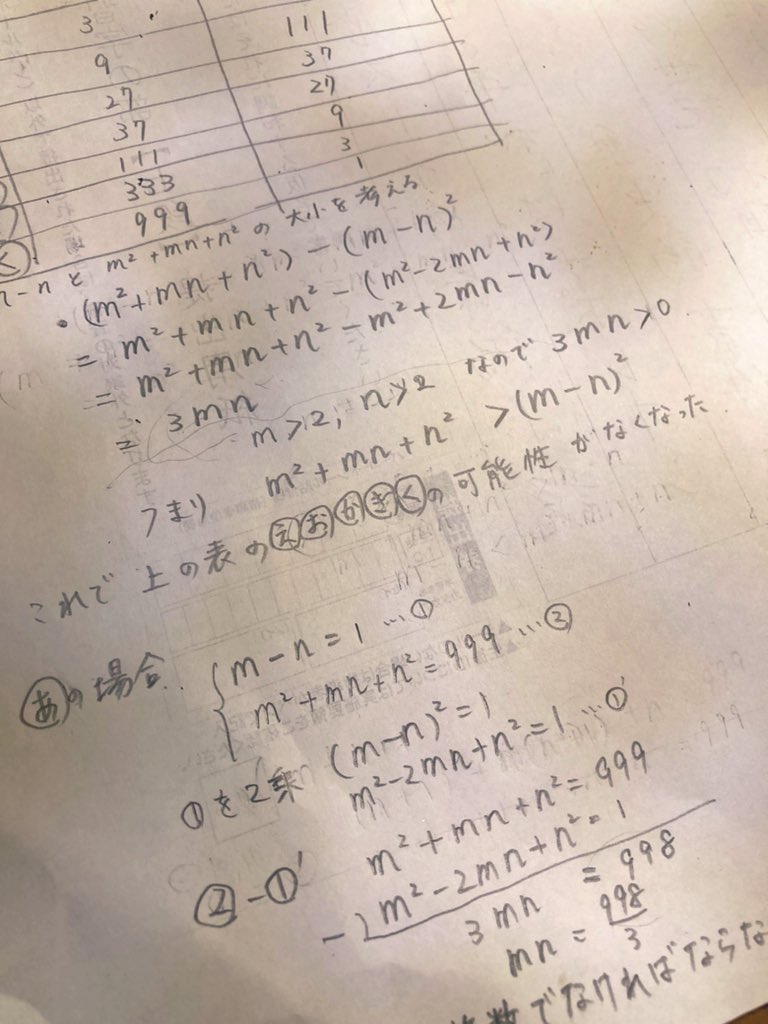 3 111
9 37
27 27
37 9
111 3
333 1
999
く
m-n と m²+mn+n² の大小を考える
・(m²+mn+n²)-(m-n)²
= m²+mn+n²-(m²-2mn+n²)
= m²+mn+n²-m²+2mn-n²
= 3mn
m>2, n>2 なので 3mn>0
つまり m²+mn+n² >(m-n)²
これで上の表のえおかきくの可能性がなくなった
あの場合 m-n=1 …①
m²+mn+n²=999 …②
①を2乗 (m-n)²=1
m²-2mn+n²=1 …①'
②-①' m²+mn+n²=999
-) m²-2mn+n²=1
3mn =998
mn = 998/3
でなければならな